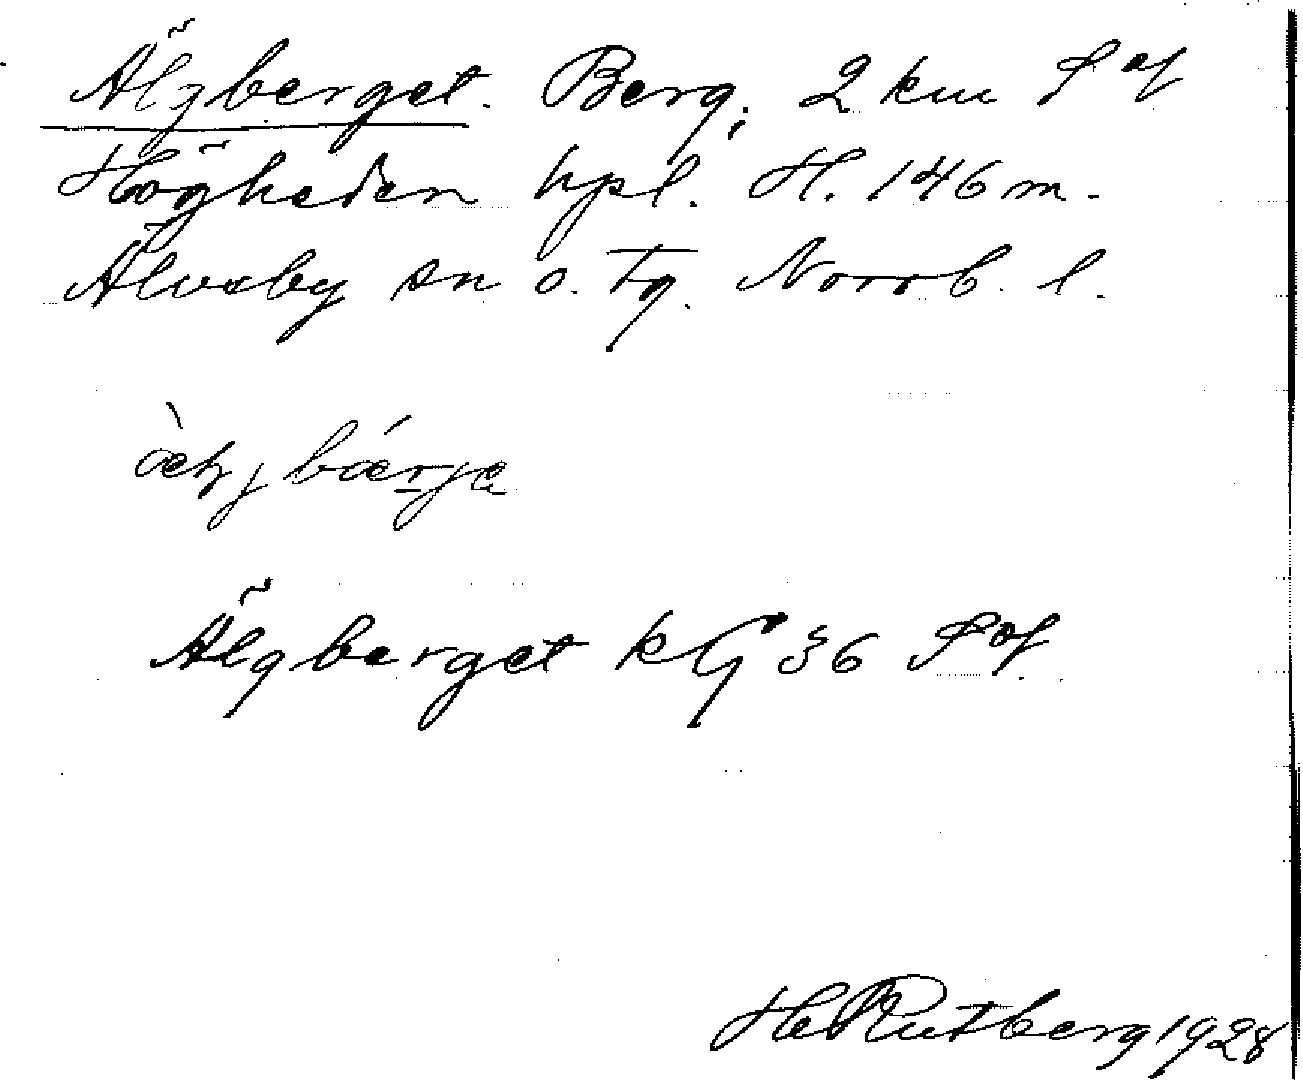 Älgberget. Berg; 2 km S of
Högheden hpl. H. 146 m.
Älvsby sn o. tg. Norrb. l.
Älgberget kG 36 S of.
HRutberg 1928